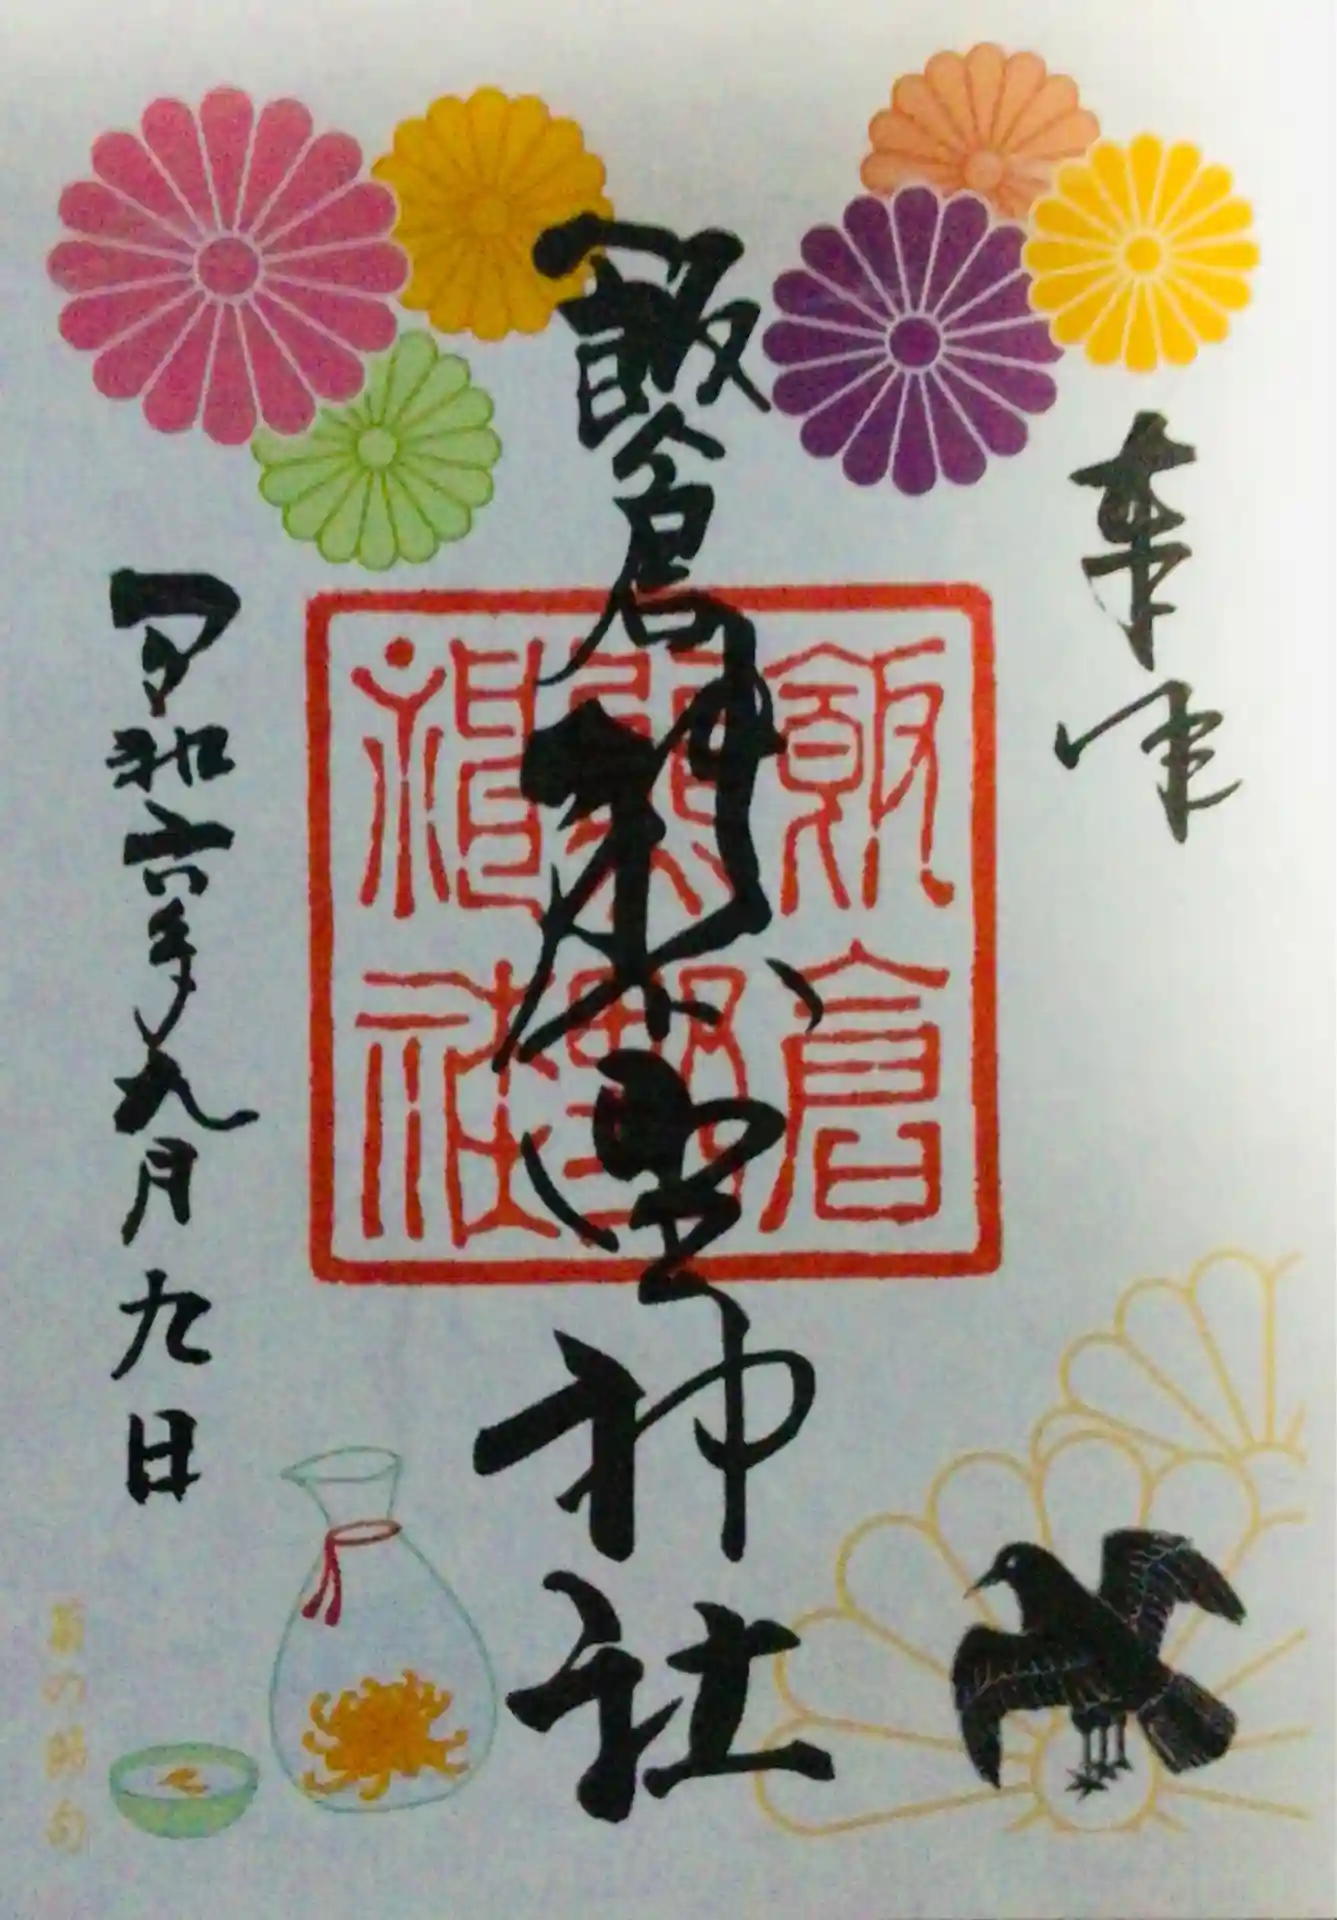 奉拝
飯倉熊野神社
飯倉
熊野
神社
令和六年九月九日
菊の節句